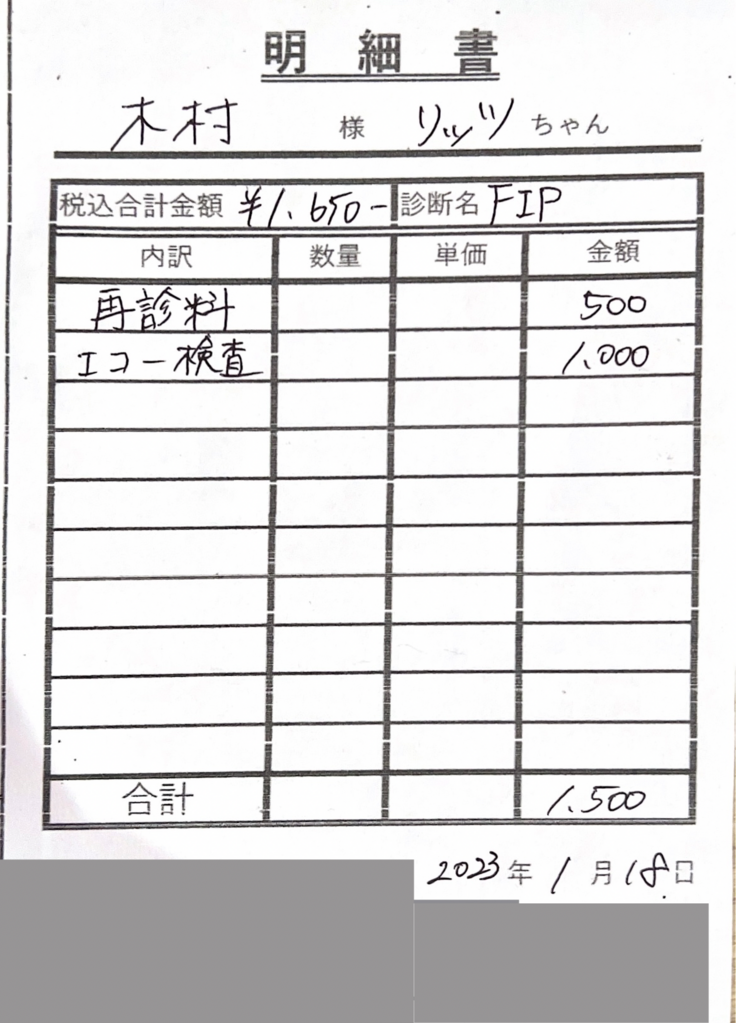 明細書
木村 様 リッツ ちゃん
税込合計金額 ¥1.650- 診断名 FIP
内訳 数量 単価 金額
再診料 500
エコー検査 1.000
合計 1.500
2023年 1月18日